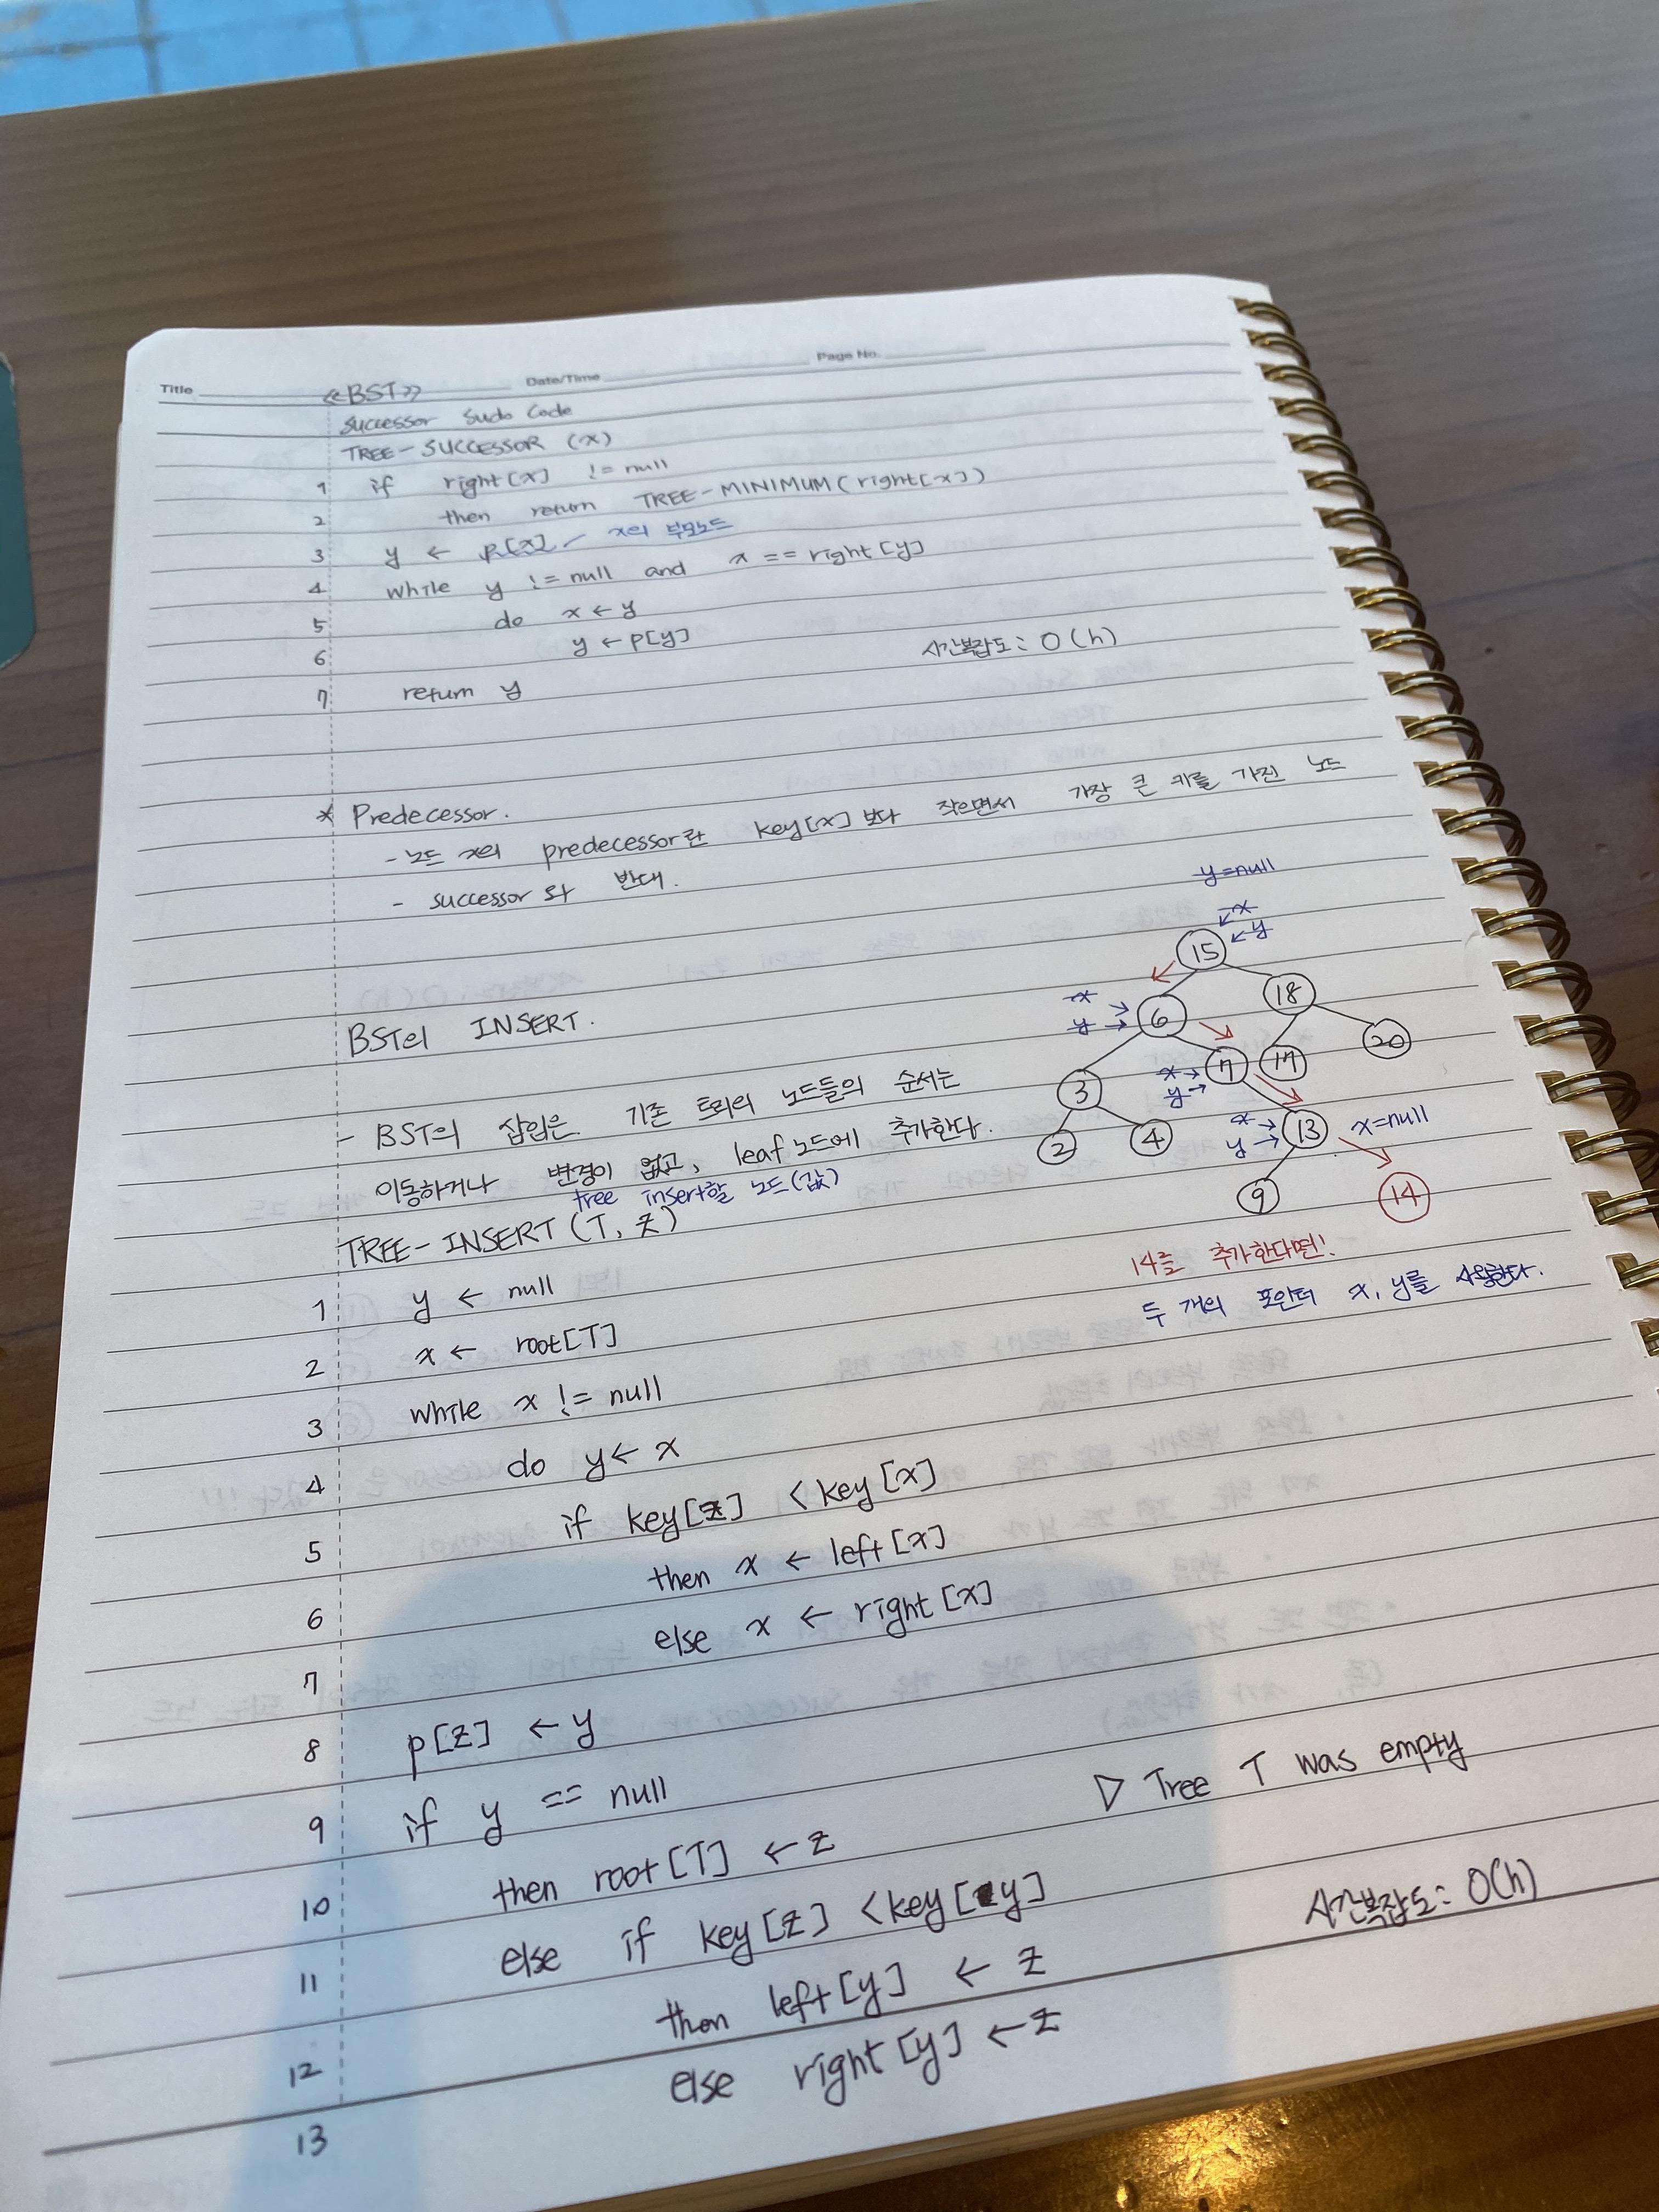 Title Date/Time Page No.
<<BST>>
Successor Sudo Code
TREE-SUCCESSOR (x)
1 if right[x] != null
2 then return TREE-MINIMUM(right[x])
3 y ← p[x] x의 부모노드
4 while y != null and x == right[y]
5 do x ← y
6 y ← p[y]
시간복잡도: O(h)
7 return y
* Predecessor.
- 노드 x의 predecessor란 key[x]보다 작으면서 가장 큰 키를 가진 노드
- successor와 반대.
y=null
x
y
15
x
y
6
18
3
x
y
7
17
20
2
4
x
y
13
x=null
9
14
14를 추가한다면!
두 개의 포인터 x, y를 사용한다.
BST의 INSERT.
- BST의 삽입은 기존 트리의 노드들의 순서는
이동하거나 변경이 없고, leaf노드에 추가한다.
tree insert할 노드(값)
TREE-INSERT(T, z)
1 y ← null
2 x ← root[T]
3 while x != null
4 do y ← x
5 if key[z] < key[x]
6 then x ← left[x]
7 else x ← right[x]
8 p[z] ← y
9 if y == null
10 then root[T] ← z ▷ Tree T was empty
11 else if key[z] < key[y]
12 then left[y] ← z
시간복잡도: O(h)
13 else right[y] ← z